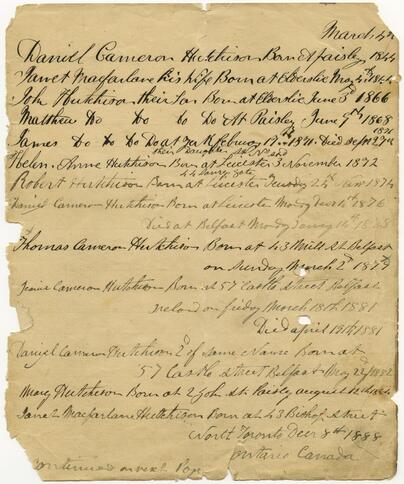 March 4th
Daniel Cameron Hutchison Born At Paisley 1844
Janet Macfarlane his wife Born at Elderslie May 4th 1842
John Hutchison their Son Born at Elderslie June 3d 1866
Matthew Do to to Do At Paisley June 9th 1868
James Do to to Do at York February 19th 1871. Died Sept 27th
1871
their Daughter at No
44 Sanvy Gate
Helen Anne Hutchison Born at Leicester 3 November 1872
Robert Hutchison Born at Leicester Tuesday 24th 1874
Daniel Cameron Hutchison Born at Leicester Monday 1876
Died at Belfast Monday 14th 1878
Thomas Cameron Hutchison Born at 43 Mill St Belfast
on Sunday March 2d 1879
Jeanie Cameron Hutchison Born At 57 Castle Street Belfast
Ireland on friday March 18th 1881
Died april 19th 1881
Daniel Cameron Hutchison 2d of same Name Born at
57 Castle Street Belfast May 22d 1882
Mary Hutchison Born at 2 John St. Paisley august
Janet Macfarlane Hutchison Born at 43 Bishop Street
North Toronto Decr 8th 1888
Ontario Canada
Continued on next Page